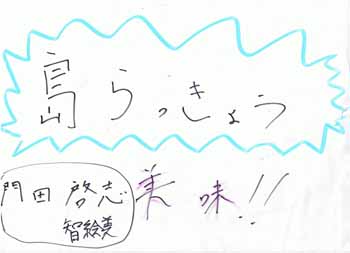 島らっきょう
門田 啓志
智絵美
美味!!